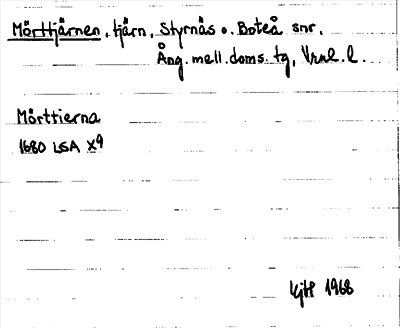 Mörttjärnen, tjärn, Styrnäs o. Boteå snr,
Ång. mell. doms. tg, Vrnl. l.
Mörttierna
1680 LSA X9
1968